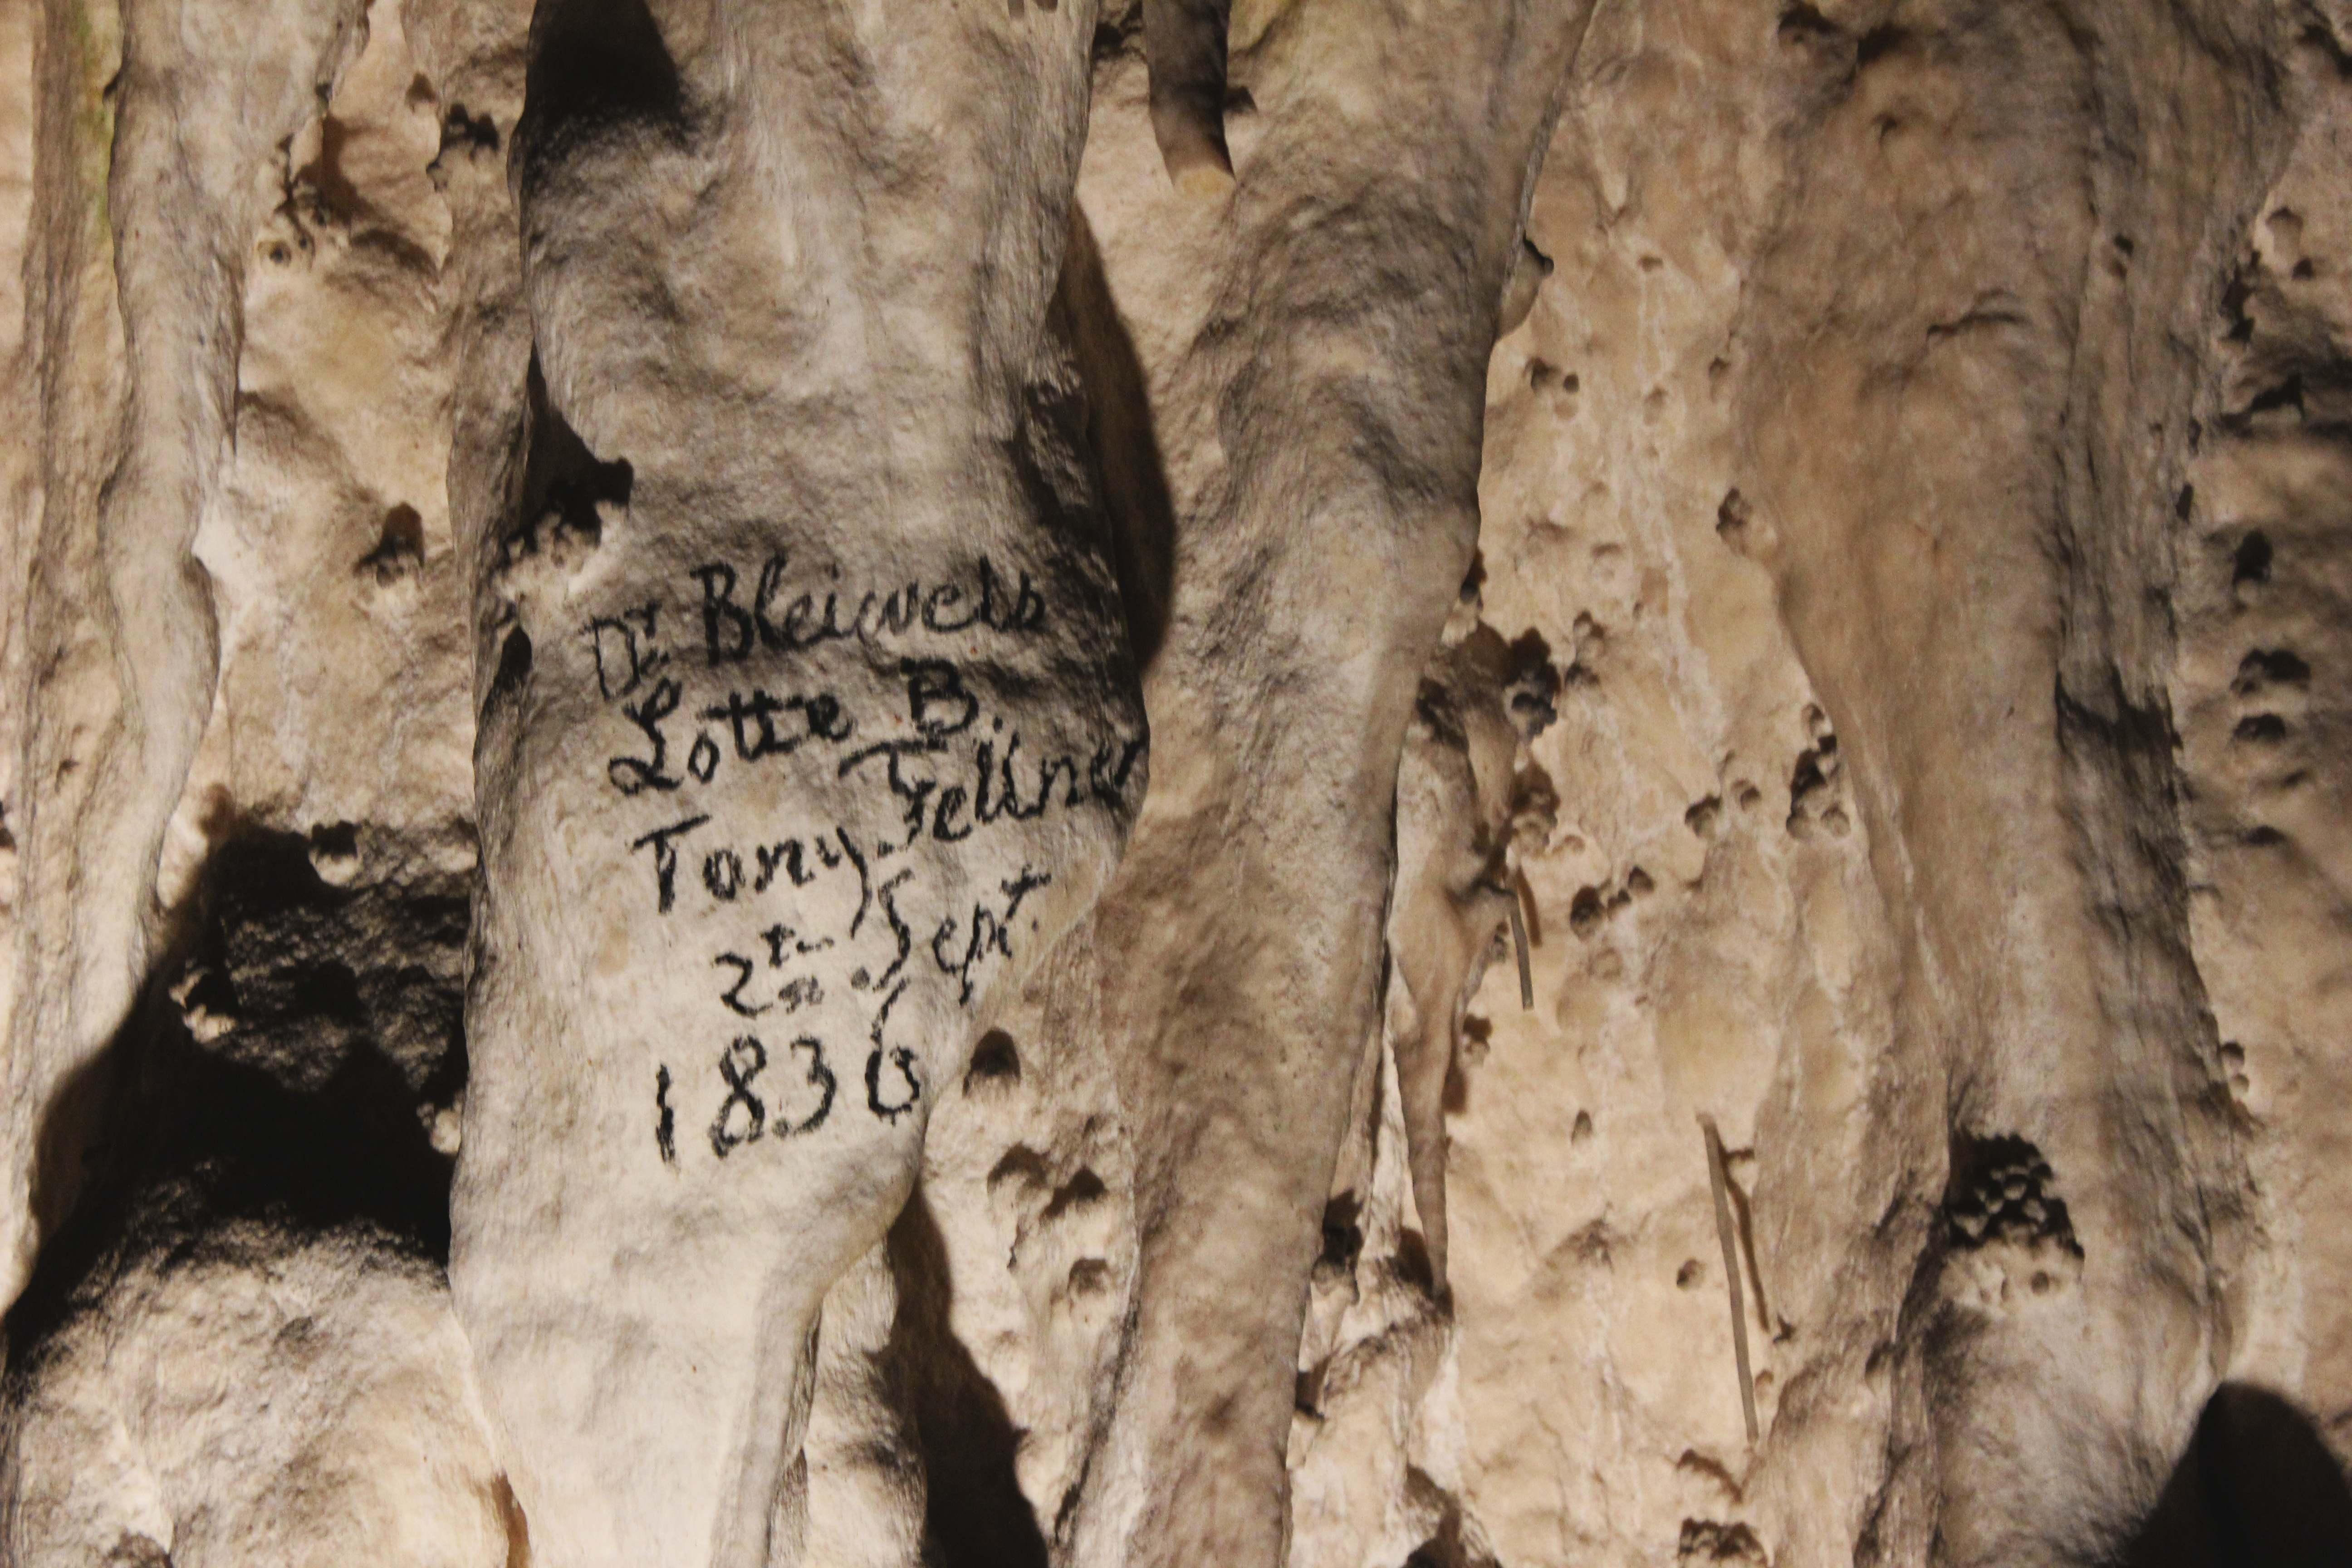 Dr Bleiweis
Lotte B.
Tony Fellner
2ten Sept.
1836